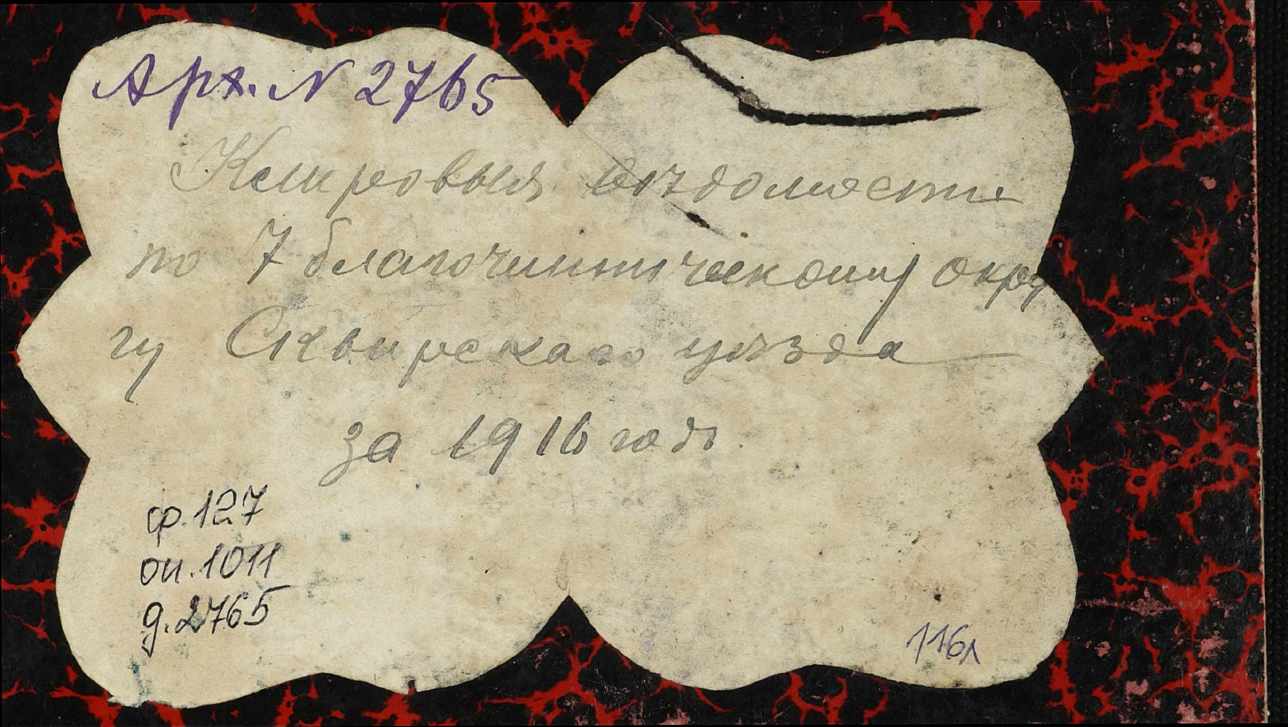 Арх. № 2765
Клировыя вѣдомости
по 7 благочинническому окру
гу Сквирскаго уѣзда
за 1916 годъ.
ф. 127
оп. 1011
д. 2765
116л